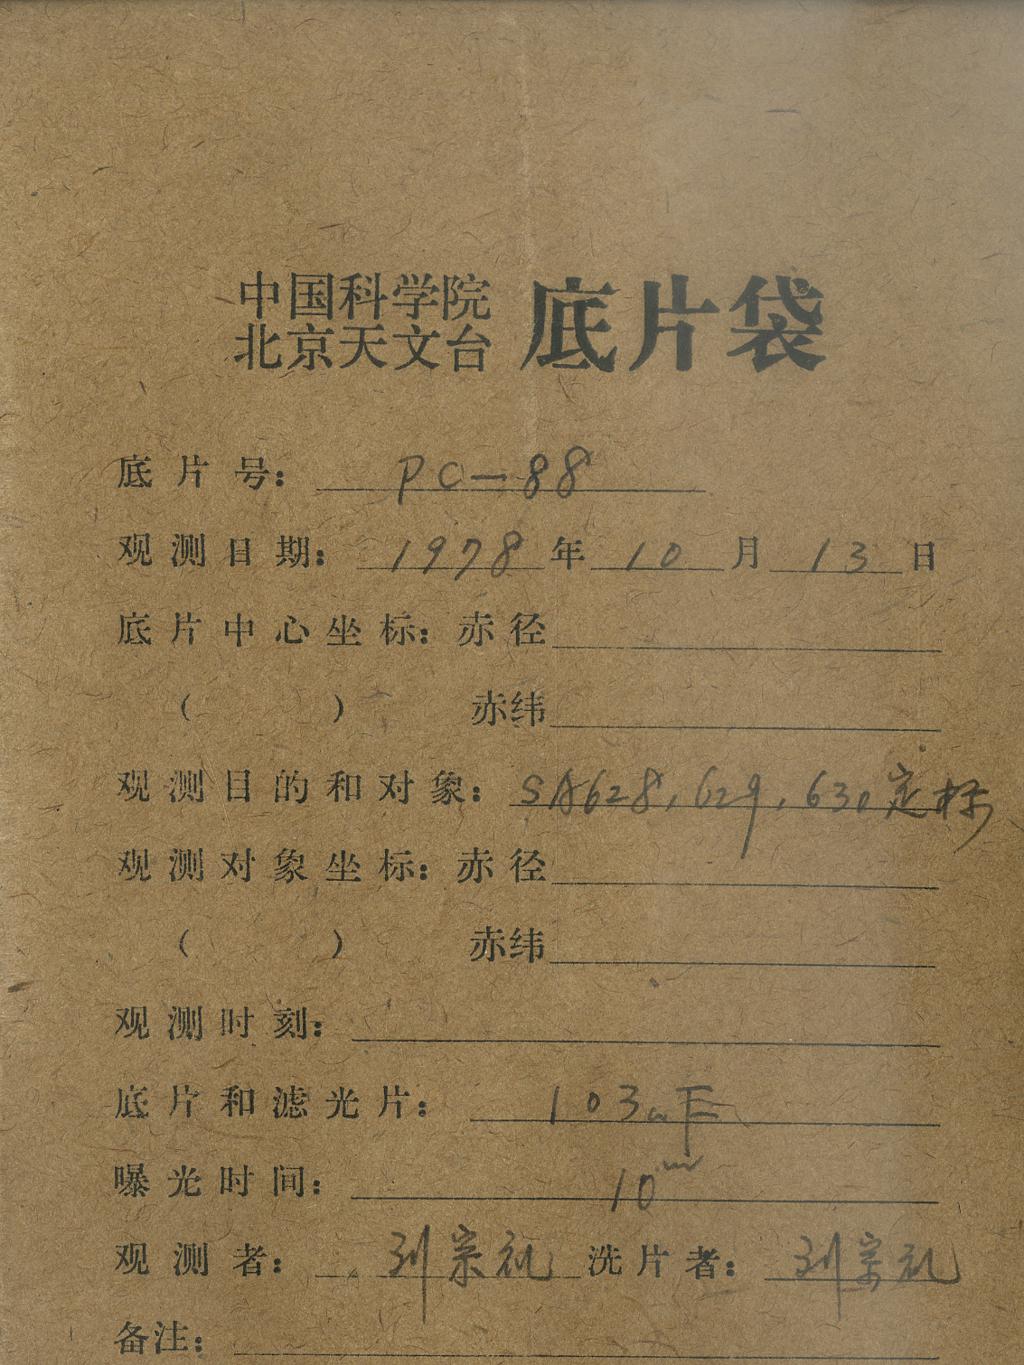 中国科学院
北京天文台 底片袋
底片号：PC-88
观测日期：1978年10月13日
底片中心坐标：赤径
（ ） 赤纬
观测目的和对象：SA628,629,630定标
观测对象坐标：赤径
（ ） 赤纬
观测时刻：
底片和滤光片：103aF
曝光时间：10m
观测者：刘宗礼 洗片者：刘宗礼
备注：